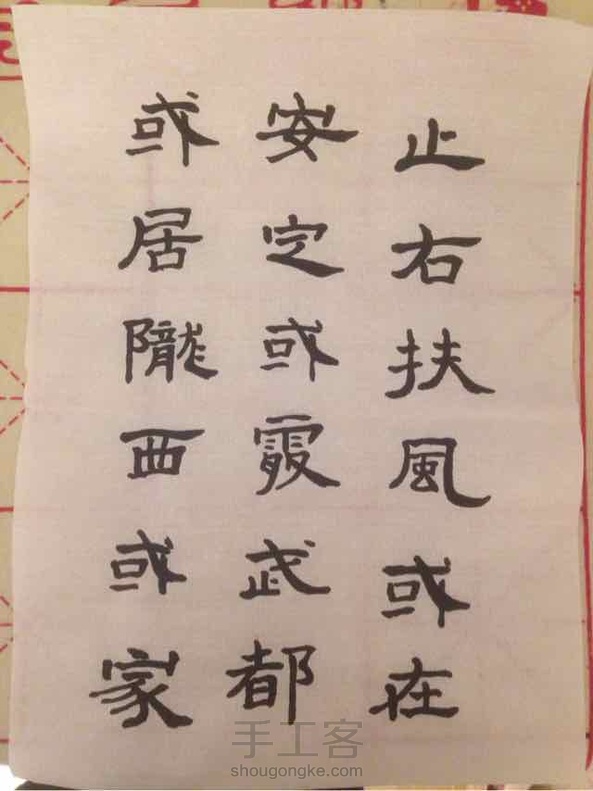 止右扶風或在
安定或處武都
或居隴西或家
手工客
shougongke.com